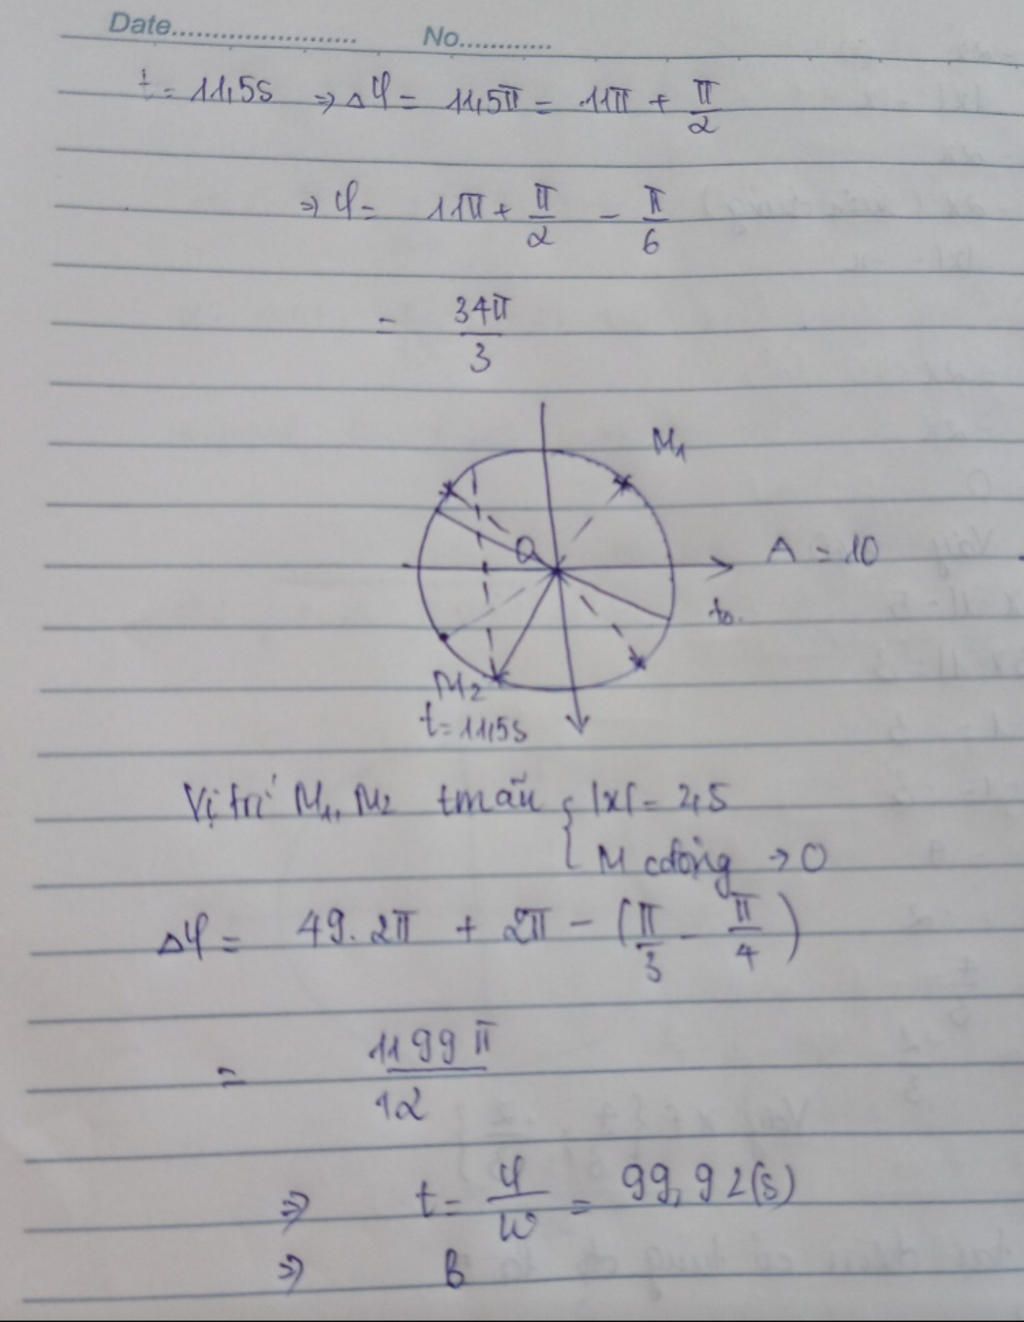 Date........................ No............
t = 11,5s => Δφ = 11,5π = 11π + π/2
=> φ = 11π + π/2 - π/6
= 34π/3
M1
O
A = 10
to.
M2
t = 11,5s
Vị trí M1, M2 tmãn { |x| = 2,5
M cđộng -> O
Δφ = 49.2π + 2π - (π/3 - π/4)
= 1199π/12
=> t = φ/w = 99,92(s)
=> B